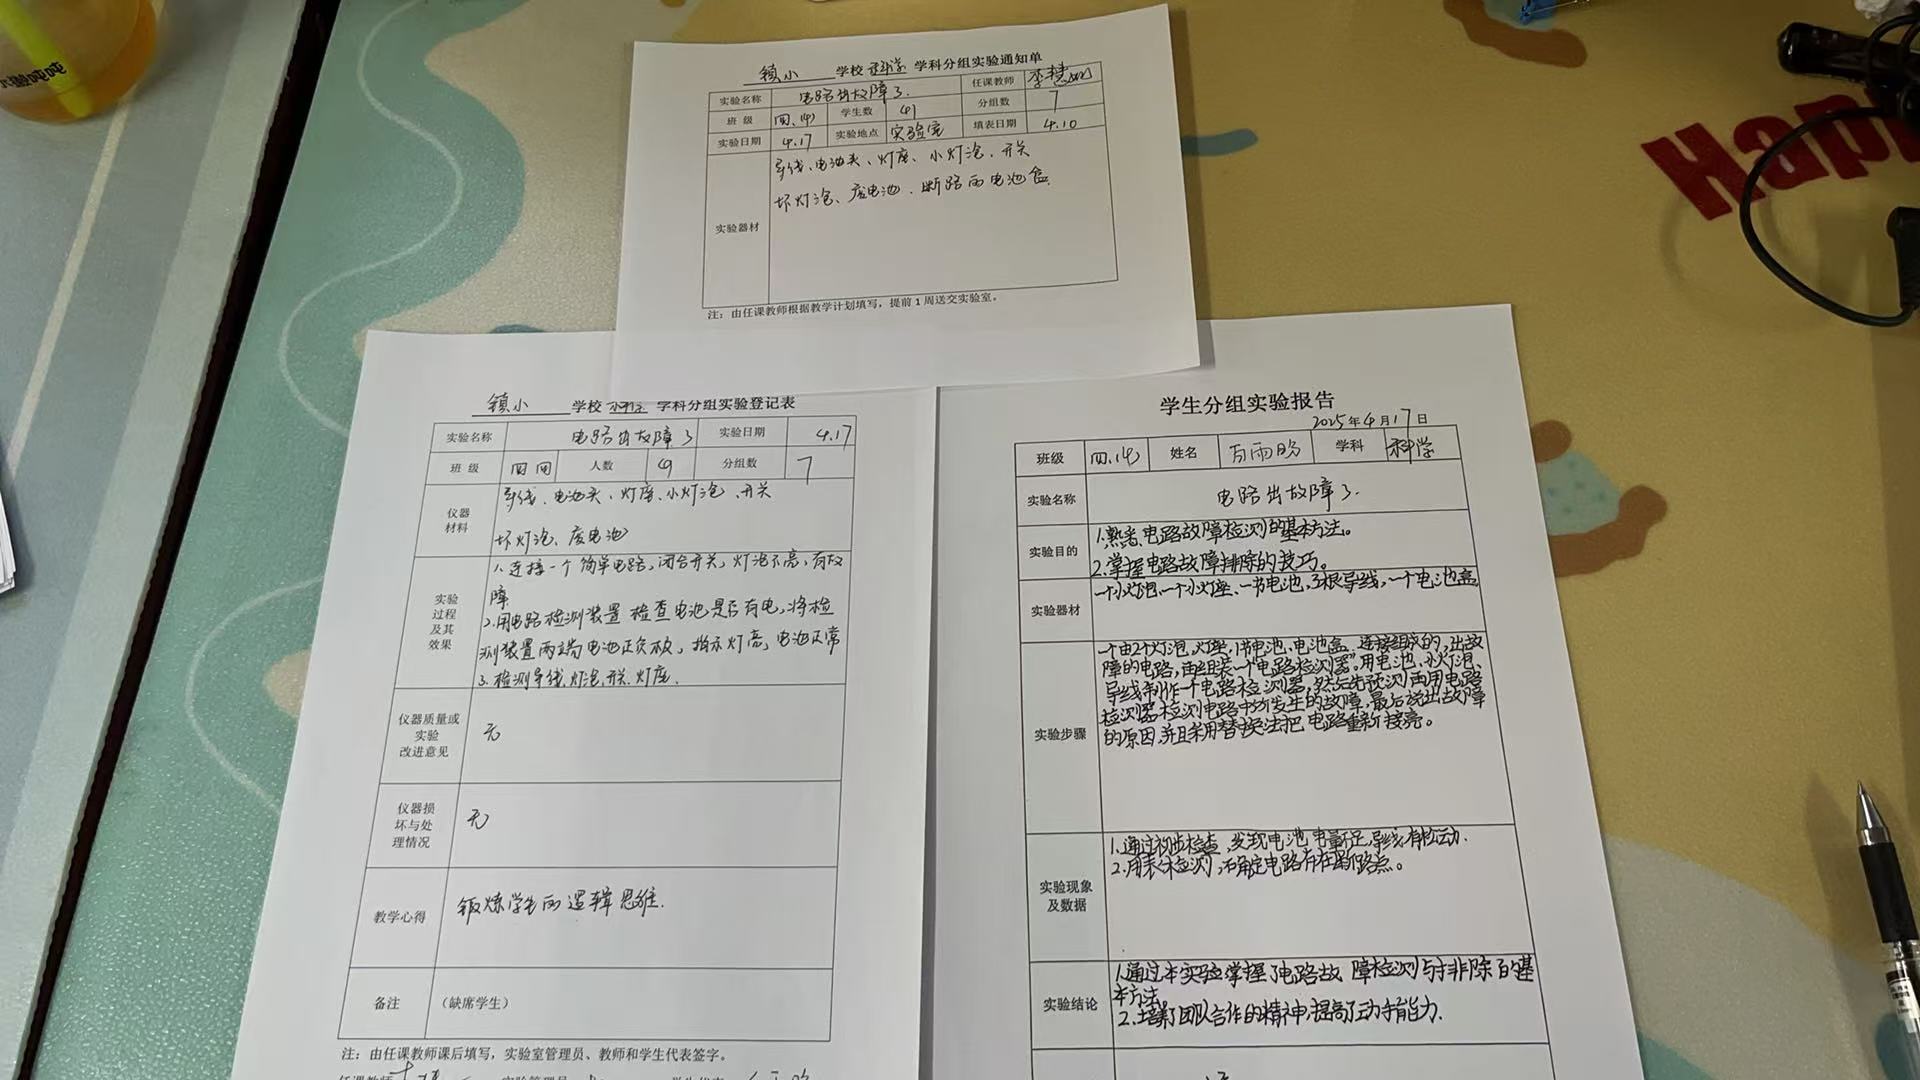 镇小 学校 科学 学科分组实验通知单
实验名称 电路出故障了. 任课教师
班 级 四.(4) 学生数 49 分组数 7
实验日期 4.17 实验地点 实验室 填表日期 4.10
实验器材
导线、电池夹、灯座、小灯泡、开关
坏灯泡、废电池、断路的电池盒
注：由任课教师根据教学计划填写，提前1周送交实验室。
镇小 学校 科学 学科分组实验登记表
实验名称 电路出故障了 实验日期 4.17
班 级 四四 人数 49 分组数 7
仪器
材料
导线、电池夹、灯座、小灯泡、开关
坏灯泡、废电池
实验
过程
及其
效果
1. 连接一个简单电路，闭合开关，灯泡不亮，有故
障
2.用电路检测装置检查电池是否有电，将检
测装置两端电池正负极，指示灯亮，电池正常
3. 检测导线.灯泡.开关.灯座.
仪器质量或
实验
改进意见
无
仪器损
坏与处
理情况
无
教学心得 锻炼学生的逻辑思维.
备注 （缺席学生）
注：由任课教师课后填写，实验室管理员、教师和学生代表签字。
学生分组实验报告
2025年4月17日
班级 四.(4) 姓名 学科 科学
实验名称 电路出故障了.
实验目的
1.熟悉电路故障检测的基本方法。
2.掌握电路故障排除的技巧。
实验器材 一个小灯泡、一个小灯座、一节电池，3根导线，一个电池盒
实验步骤
一个由2个灯泡，灯座，1节电池、电池盒 连接组成的，出故
障的电路，由组装一个"电路检测器"。用电池、小灯泡、
导线制作一个电路检测器，然后先预测再用电路
检测器检测电路中所发生的故障，最后说出故障
的原因,并且采用替换法把电路重新接亮。
实验现象
及数据
1.通过初步检查，发现电池电量不足，导线有松动.
2.用表体检测，确定电路存在断路点。
实验结论
1.通过本实验掌握了电路故障检测与排除的基
本方法
2.培养了团队合作的精神,提高了动手能力.